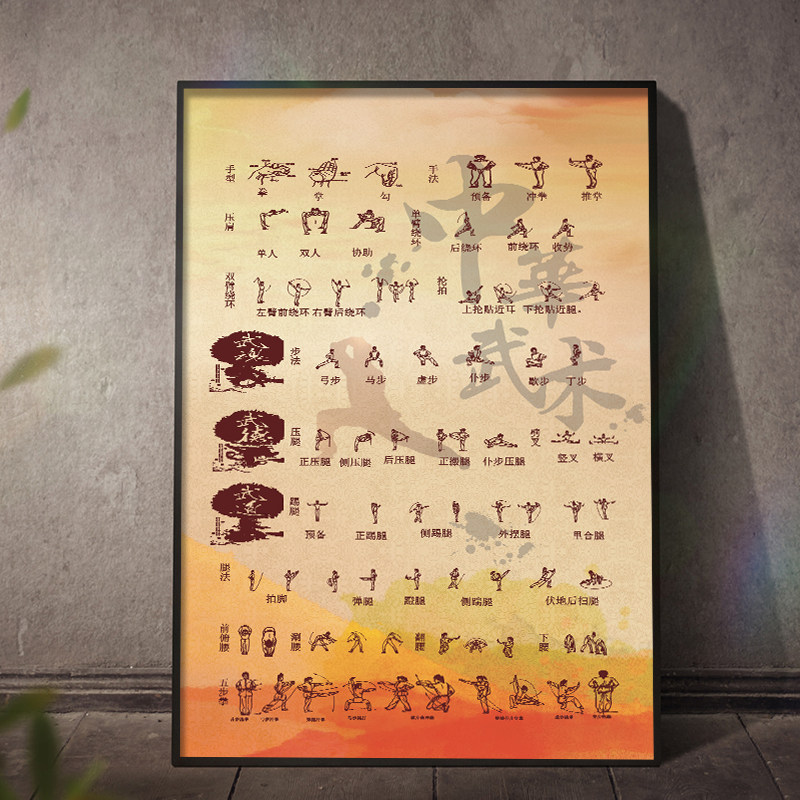 中華武术
手型
拳 掌 勾
手法
预备 冲拳 推掌
压肩
单人 双人 协助
单臂绕环
后绕环 前绕环 收势
双臂绕环
左臂前绕环右臂后绕环
抡拍
上抡贴近耳 下抡贴近腿。
武魂
步法
弓步 马步 虚步 仆步 歇步 丁步
武德
压腿
正压腿 侧压腿 后压腿 正搬腿 仆步压腿
劈叉
竖叉 横叉
武道
踢腿
预备 正踢腿 侧踢腿 外摆腿 里合腿
腿法
拍脚 弹腿 蹬腿 侧踹腿 伏地后扫腿
前俯腰
涮腰
翻腰
下腰
五步拳